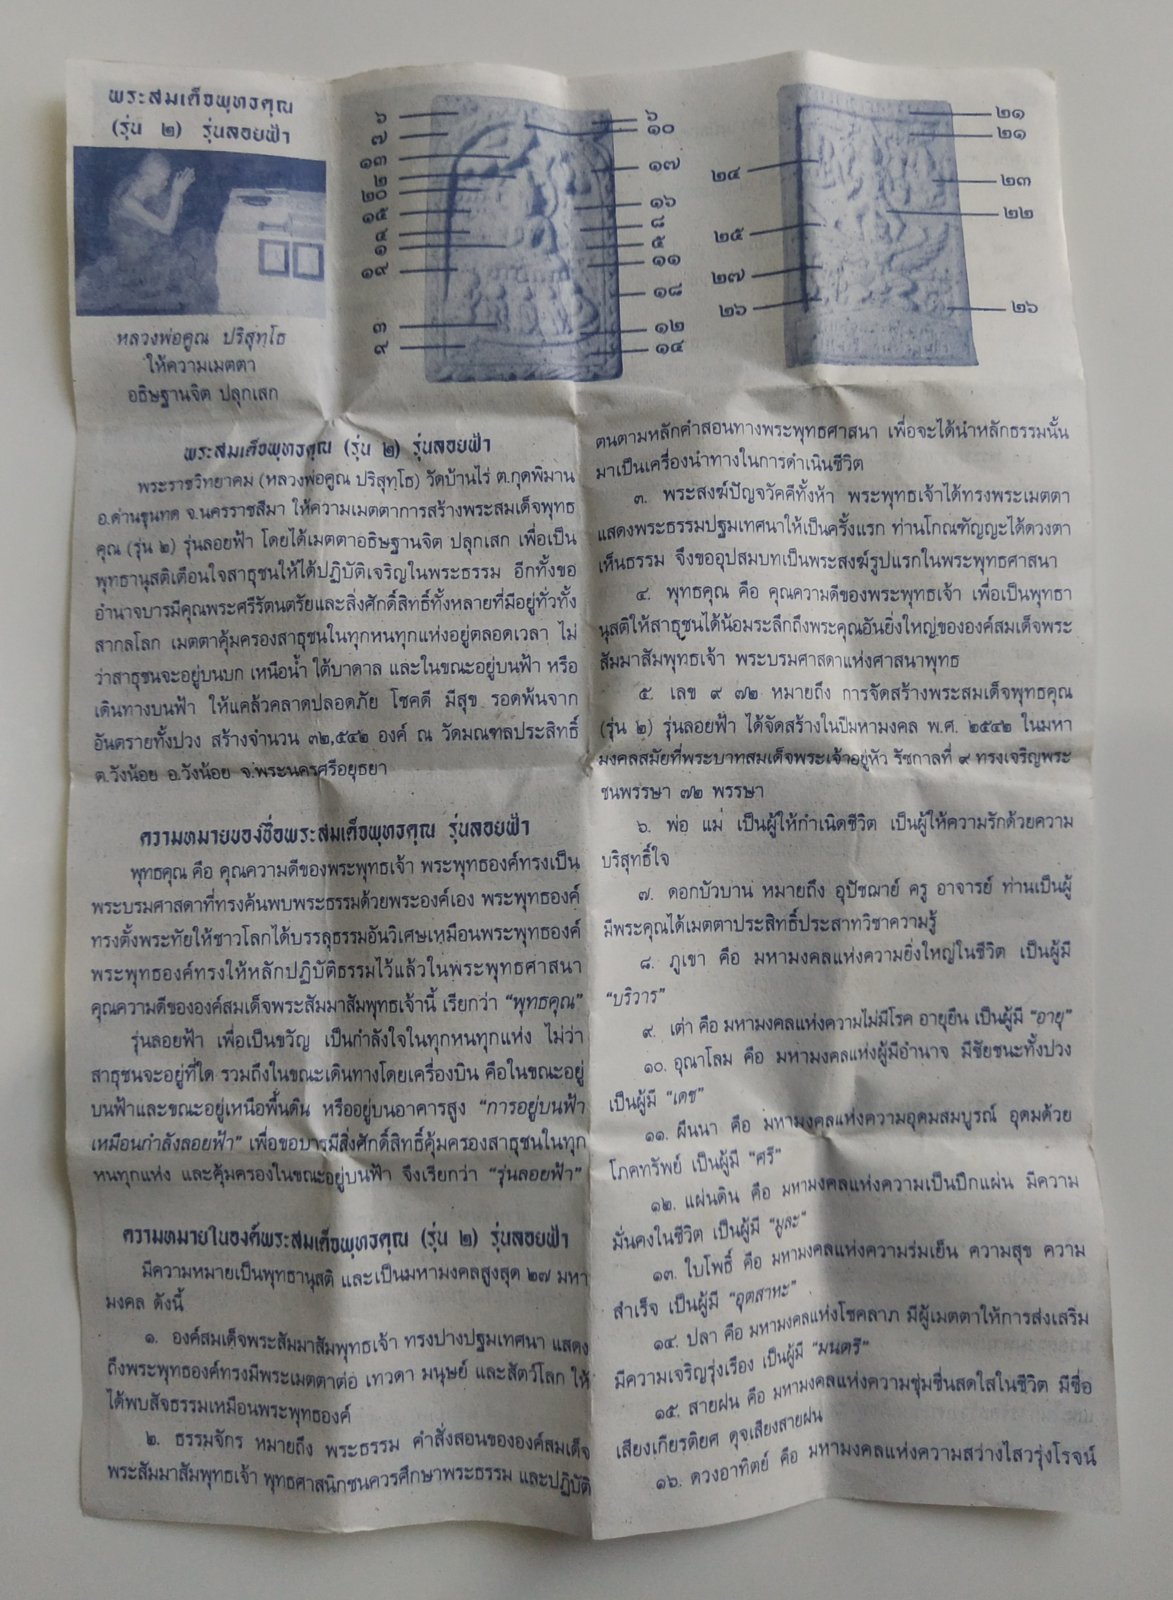 พระสมเด็จพุทธคุณ
(รุ่น ๒) รุ่นลอยฟ้า
หลวงพ่อคูณ ปริสุทฺโธ
ให้ความเมตตา
อธิษฐานจิต ปลุกเสก
๖
๗
๑๓
๒
๒๐
๑๕
๔
๑
๑๙
๓
๙
๖
๑๐
๑๗
๑๖
๘
๕
๑๑
๑๘
๑๒
๑๔
๒๔
๒๕
๒๗
๒๖
๒๑
๒๑
๒๓
๒๒
๒๖
พระสมเด็จพุทธคุณ (รุ่น ๒) รุ่นลอยฟ้า
พระราชวิทยาคม (หลวงพ่อคูณ ปริสุทฺโธ) วัดบ้านไร่ ต.กุดพิมาน
อ.ด่านขุนทด จ.นครราชสีมา ให้ความเมตตาการสร้างพระสมเด็จพุทธ
คุณ (รุ่น ๒) รุ่นลอยฟ้า โดยได้เมตตาอธิษฐานจิต ปลุกเสก เพื่อเป็น
พุทธานุสติเตือนใจสาธุชนให้ได้ปฏิบัติเจริญในพระธรรม อีกทั้งขอ
อำนาจบารมีคุณพระศรีรัตนตรัยและสิ่งศักดิ์สิทธิ์ทั้งหลายที่มีอยู่ทั่วทั้ง
สากลโลก เมตตาคุ้มครองสาธุชนในทุกหนทุกแห่งอยู่ตลอดเวลา ไม่
ว่าสาธุชนจะอยู่บนบก เหนือน้ำ ใต้บาดาล และในขณะอยู่บนฟ้า หรือ
เดินทางบนฟ้า ให้แคล้วคลาดปลอดภัย โชคดี มีสุข รอดพ้นจาก
อันตรายทั้งปวง สร้างจำนวน ๓๒,๕๔๒ องค์ ณ วัดมณฑลประสิทธิ์
ต.วังน้อย อ.วังน้อย จ.พระนครศรีอยุธยา
ความหมายของชื่อพระสมเด็จพุทธคุณ รุ่นลอยฟ้า
พุทธคุณ คือ คุณความดีของพระพุทธเจ้า พระพุทธองค์ทรงเป็น
พระบรมศาสดาที่ทรงค้นพบพระธรรมด้วยพระองค์เอง พระพุทธองค์
ทรงตั้งพระทัยให้ชาวโลกได้บรรลุธรรมอันวิเศษเหมือนพระพุทธองค์
พระพุทธองค์ทรงให้หลักปฏิบัติธรรมไว้แล้วในพระพุทธศาสนา
คุณความดีขององค์สมเด็จพระสัมมาสัมพุทธเจ้านี้ เรียกว่า "พุทธคุณ"
รุ่นลอยฟ้า เพื่อเป็นขวัญ เป็นกำลังใจในทุกหนทุกแห่ง ไม่ว่า
สาธุชนจะอยู่ที่ใด รวมถึงในขณะเดินทางโดยเครื่องบิน คือในขณะอยู่
บนฟ้าและขณะอยู่เหนือพื้นดิน หรืออยู่บนอาคารสูง "การอยู่บนฟ้า
เหมือนกำลังลอยฟ้า" เพื่อขอบารมีสิ่งศักดิ์สิทธิ์คุ้มครองสาธุชนในทุก
หนทุกแห่ง และคุ้มครองในขณะอยู่บนฟ้า จึงเรียกว่า "รุ่นลอยฟ้า"
ความหมายในองค์พระสมเด็จพุทธคุณ (รุ่น ๒) รุ่นลอยฟ้า
มีความหมายเป็นพุทธานุสติ และเป็นมหามงคลสูงสุด ๒๗ มหา
มงคล ดังนี้
๑. องค์สมเด็จพระสัมมาสัมพุทธเจ้า ทรงปางปฐมเทศนา แสดง
ถึงพระพุทธองค์ทรงมีพระเมตตาต่อ เทวดา มนุษย์ และสัตว์โลก ให้
ได้พบสัจธรรมเหมือนพระพุทธองค์
๒. ธรรมจักร หมายถึง พระธรรม คำสั่งสอนขององค์สมเด็จ
พระสัมมาสัมพุทธเจ้า พุทธศาสนิกชนควรศึกษาพระธรรม และปฏิบัติ
ตนตามหลักคำสอนทางพระพุทธศาสนา เพื่อจะได้นำหลักธรรมนั้น
มาเป็นเครื่องนำทางในการดำเนินชีวิต
๓. พระสงฆ์ปัญจวัคคีทั้งห้า พระพุทธเจ้าได้ทรงพระเมตตา
แสดงพระธรรมปฐมเทศนาให้เป็นครั้งแรก ท่านโกณฑัญญะได้ดวงตา
เห็นธรรม จึงขออุปสมบทเป็นพระสงฆ์รูปแรกในพระพุทธศาสนา
๔. พุทธคุณ คือ คุณความดีของพระพุทธเจ้า เพื่อเป็นพุทธา
นุสติให้สาธุชนได้น้อมระลึกถึงพระคุณอันยิ่งใหญ่ขององค์สมเด็จพระ
สัมมาสัมพุทธเจ้า พระบรมศาสดาแห่งศาสนาพุทธ
๕. เลข ๙ ๗๒ หมายถึง การจัดสร้างพระสมเด็จพุทธคุณ
(รุ่น ๒) รุ่นลอยฟ้า ได้จัดสร้างในปีมหามงคล พ.ศ. ๒๕๔๒ ในมหา
มงคลสมัยที่พระบาทสมเด็จพระเจ้าอยู่หัว รัชกาลที่ ๙ ทรงเจริญพระ
ชนพรรษา ๗๒ พรรษา
๖. พ่อ แม่ เป็นผู้ให้กำเนิดชีวิต เป็นผู้ให้ความรักด้วยความ
บริสุทธิ์ใจ
๗. ดอกบัวบาน หมายถึง อุปัชฌาย์ ครู อาจารย์ ท่านเป็นผู้
มีพระคุณได้เมตตาประสิทธิ์ประสาทวิชาความรู้
๘. ภูเขา คือ มหามงคลแห่งความยิ่งใหญ่ในชีวิต เป็นผู้มี
"บริวาร"
๙. เต่า คือ มหามงคลแห่งความไม่มีโรค อายุยืน เป็นผู้มี "อายุ"
๑๐. อุณาโลม คือ มหามงคลแห่งผู้มีอำนาจ มีชัยชนะทั้งปวง
เป็นผู้มี "เดช"
๑๑. ผืนนา คือ มหามงคลแห่งความอุดมสมบูรณ์ อุดมด้วย
โภคทรัพย์ เป็นผู้มี "ศรี"
๑๒. แผ่นดิน คือ มหามงคลแห่งความเป็นปึกแผ่น มีความ
มั่นคงในชีวิต เป็นผู้มี "มูละ"
๑๓. ใบโพธิ์ คือ มหามงคลแห่งความร่มเย็น ความสุข ความ
สำเร็จ เป็นผู้มี "อุตสาหะ"
๑๔. ปลา คือ มหามงคลแห่งโชคลาภ มีผู้เมตตาให้การส่งเสริม
มีความเจริญรุ่งเรือง เป็นผู้มี "มนตรี"
๑๕. สายฝน คือ มหามงคลแห่งความชุ่มชื่นสดใสในชีวิต มีชื่อ
เสียงเกียรติยศ ดุจเสียงสายฝน
๑๖. ดวงอาทิตย์ คือ มหามงคลแห่งความสว่างไสวรุ่งโรจน์